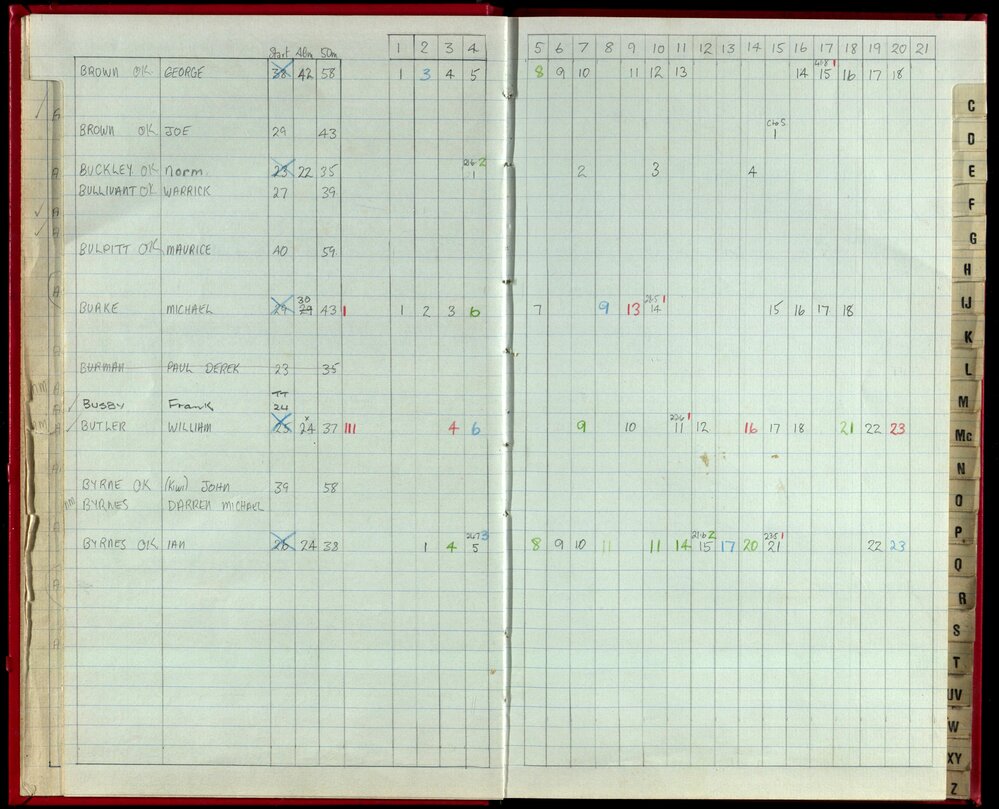 Start Abm 50m 1 2 3 4 5 6 7 8 9 10 11 12 13 14 15 16 17 18 19 20 21
BROWN OK GEORGE 38 42 58 1 3 4 5 8 9 10 11 12 13 14 15 16 17 18
BROWN OK JOE 29 43 1
BUCKLEY OK Norm 23 22 35 1 2 3 4
BULLIVANT OK WARRICK 27 39
BULPITT OK MAURICE 40 59
BURKE MICHAEL 29 30 29 43 1 1 2 3 6 7 9 13 14 15 16 17 18
BURMAN PAUL DEREK 23 35
BUSBY Frank TT 24
BUTLER WILLIAM 25 24 37 III 4 6 9 10 11 12 16 17 18 21 22 23
BYRNE OK (Kiwi) JOHN 39 58
nm BYRNES DARREN MICHAEL
BYRNES OK IAN 26 24 38 1 4 5 8 9 10 11 11 14 15 17 20 21 22 23
C
D
E
F
G
H
IJ
K
L
M
Mc
N
O
P
Q
R
S
T
UV
W
XY
Z